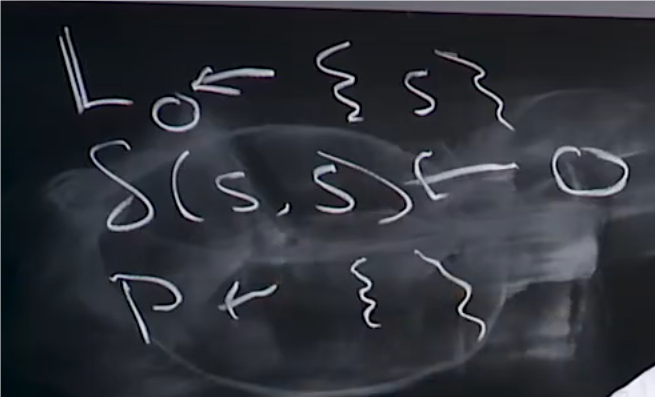 L₀ ← { s }
δ(s, s) ← 0
P ← { }